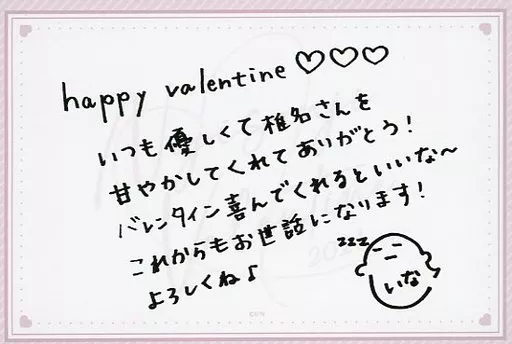 happy valentine ♡♡♡
いつも優しくて椎名さんを
甘やかしてくれてありがとう!
バレンタイン喜んでくれるといいな~
これからもお世話になります!
よろしくね♪
zzz
いな